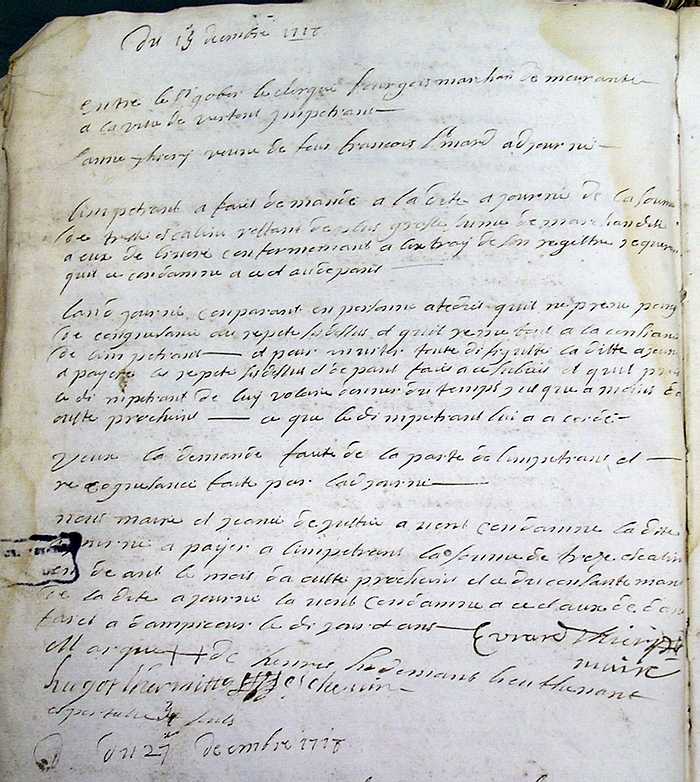 du 13 decembre 1718
entre le Sr gober le clerque bourgois marchan demeurante
a la ville de vertons jmpetrant
lanne thiery veuve de feus francois linard adjourné
limpetrant a fait demande a la dite ajourné de la somme
de tresse escalin restant de plus grosse sume de marchandise
a eux de livré conformement a lextrai de son registre requerant
quil ce condamne a ce et au depans
ladjourné comparant en personne at dict quil ne prene point
de cognesance du repete sisdessus et quil remet tout a la consiance
de limpetrant et pour inviter toute difiqulté la ditte ajourné
a payera ce repete sisdessus et depant fais a ce subiet et quil prie
le di impetrant de luy voloire donner du temps jusque a mois da
ouste prochins ce que le di impetrant lui a acordé
veux la demande faite de la parte de limpetrant et
recognesance faite par ladjourné
nous maire et gens de justice avons condamne la dite
ajourné a payer a limpetrant la somme de treze escalin
devant le mois da ouste prochins et ce du consantement
de la dite ajourné la vons condamne a ce et aux depan
faict a dampicour le di jour et ans Evrard thiery
maire
Marque ++ de henry lieuthenant
hugot lhermitte eschevin
du 27 decembre 1718